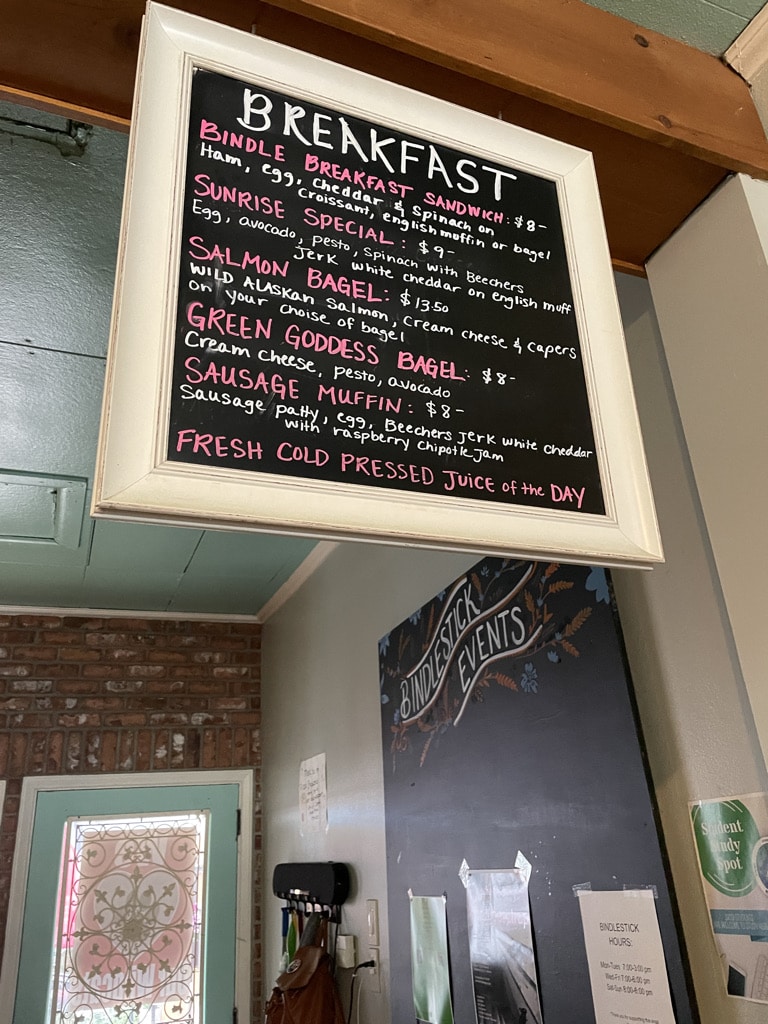 BREAKFAST
BINDLE BREAKFAST SANDWICH: $8-
Ham, egg, cheddar & Spinach on
croissant, english muffin or bagel
SUNRISE SPECIAL: $9-
Egg, avocado, pesto, Spinach with Beechers
Jerk white cheddar on english muff
SALMON BAGEL: $13.50
WILD ALASKan Salmon, Cream cheese & capers
on your choise of bagel
GREEN GODDESS BAGEL: $8-
Cream cheese, pesto, avocado
SAUSAGE MUFFIN: $8-
Sausage patty, egg, Beechers Jerk white cheddar
with raspberry Chipotle Jam
FRESH COLD PRESSED JUICE of the DAY
BINDLESTICK
EVENTS
Student
Study
Spot
BINDLESTICK
HOURS:
Mon-Tues 7:00-3:00 pm
Wed-Fri 7:00-6:00 pm
Sat-Sun 8:00-6:00 pm